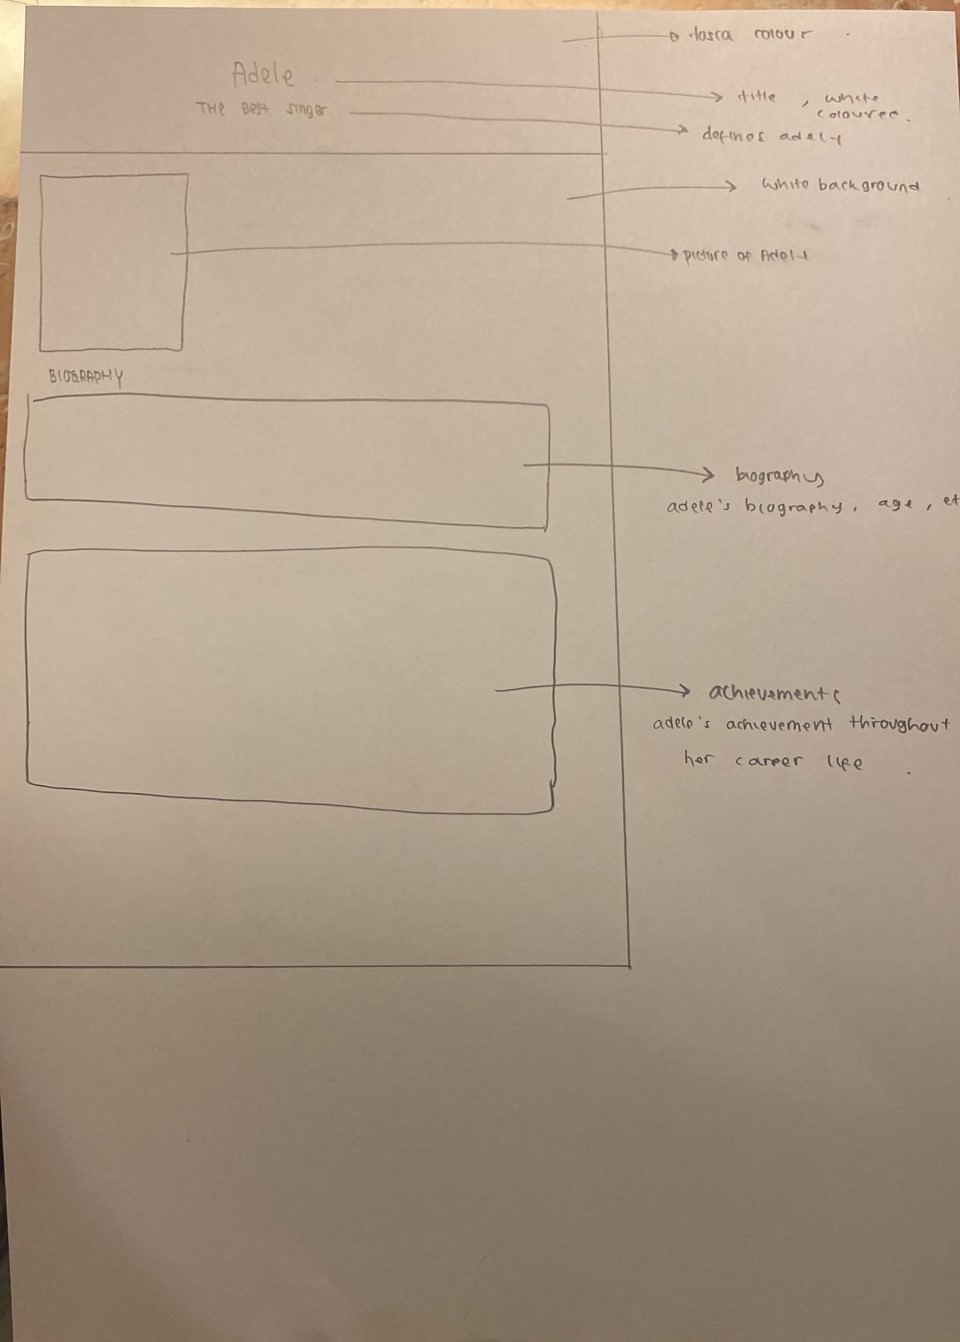 colour
Adele
title, white
coloured.
THE Best singer
defines adely
white background
picture of Adele
BIOGRAPHY
biography
adele's biography, age, et
achievements
adele's achievement throughout
her career life